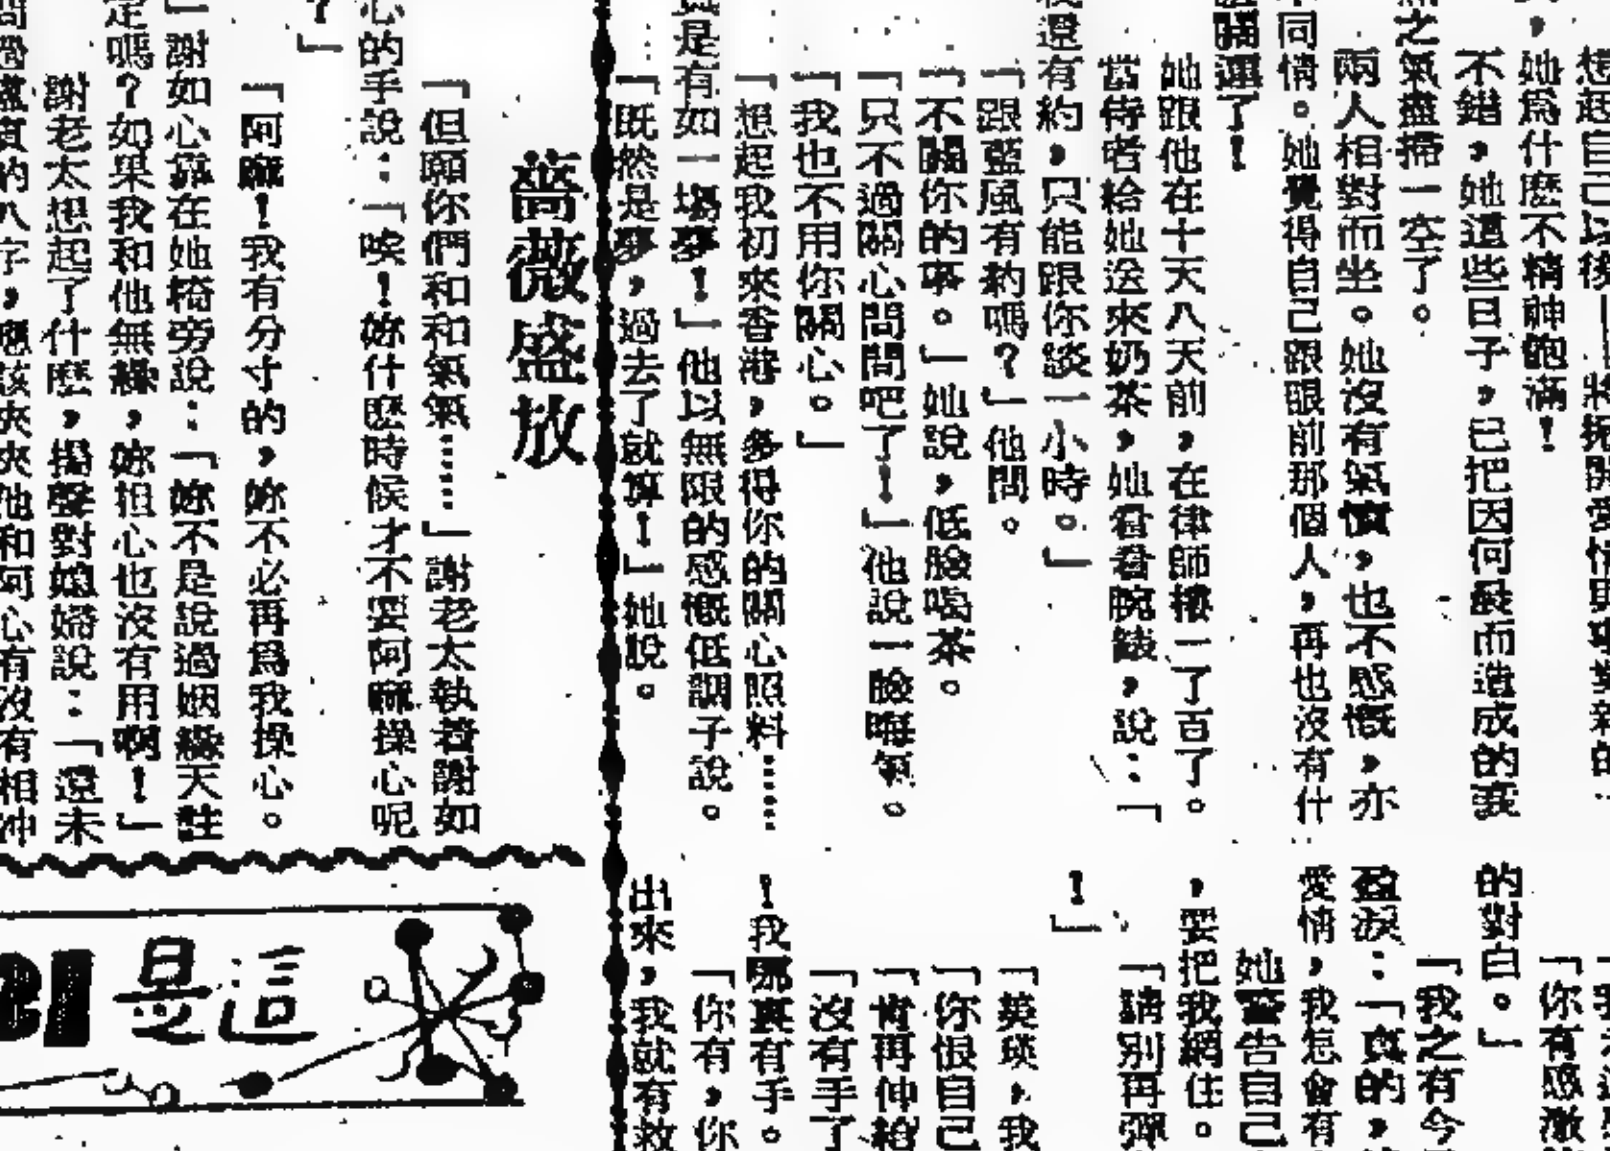 想起自己以後——將拓開愛情與事業新的
，她爲什麽不精神飽滿！
不錯，她這些日子，已把因何晨而造成的衰
之氣盡掃一空了。
兩人相對而坐。她沒有氣憤，也不感慨，亦
不同情。她覺得自己跟眼前那個人，再也沒有什
麽關連了！
她跟他在十天八天前，在律師樓一了百了。
當侍者給她送來奶茶，她看看腕錶，說：「
我還有約，只能跟你談一小時。」
「跟藍風有約嗎？」他問。
「不關你的事。」她說，低臉喝茶。
「只不過關心問問吧了！」他說一臉晦氣。
「我也不用你關心。」
「想起我初來香港，多得你的關心照料……
真是有如一場夢！」他以無限的感慨低調子說。
「既然是夢，過去了就算！」她說。
「你有感激
的對白。」
「我之有今
盈淚：「真的，
愛情，我怎會有
她警告自己
，要把我網住。
「請別再彈
！」
「英瑛，我
「你恨自己
「肯再伸給
「沒有手了
！我那裏有手。
「你有，你
出來，我就有救
薔薇盛放
「但願你們和和氣氣……」謝老太執著謝如
心的手說：「唉！妳什麽時候才不要阿嫲操心呢
？」
「阿嫲！我有分寸的，妳不必再爲我操心。
」謝如心靠在她椅旁說：「妳不是說過姻緣天註
定嗎？如果我和他無緣，妳担心也沒有用啊！」
謝老太想起了什麽，揚聲對媳婦說：「還未
問過盧賓的八字，應該夾夾他和阿心有沒有相冲
這是